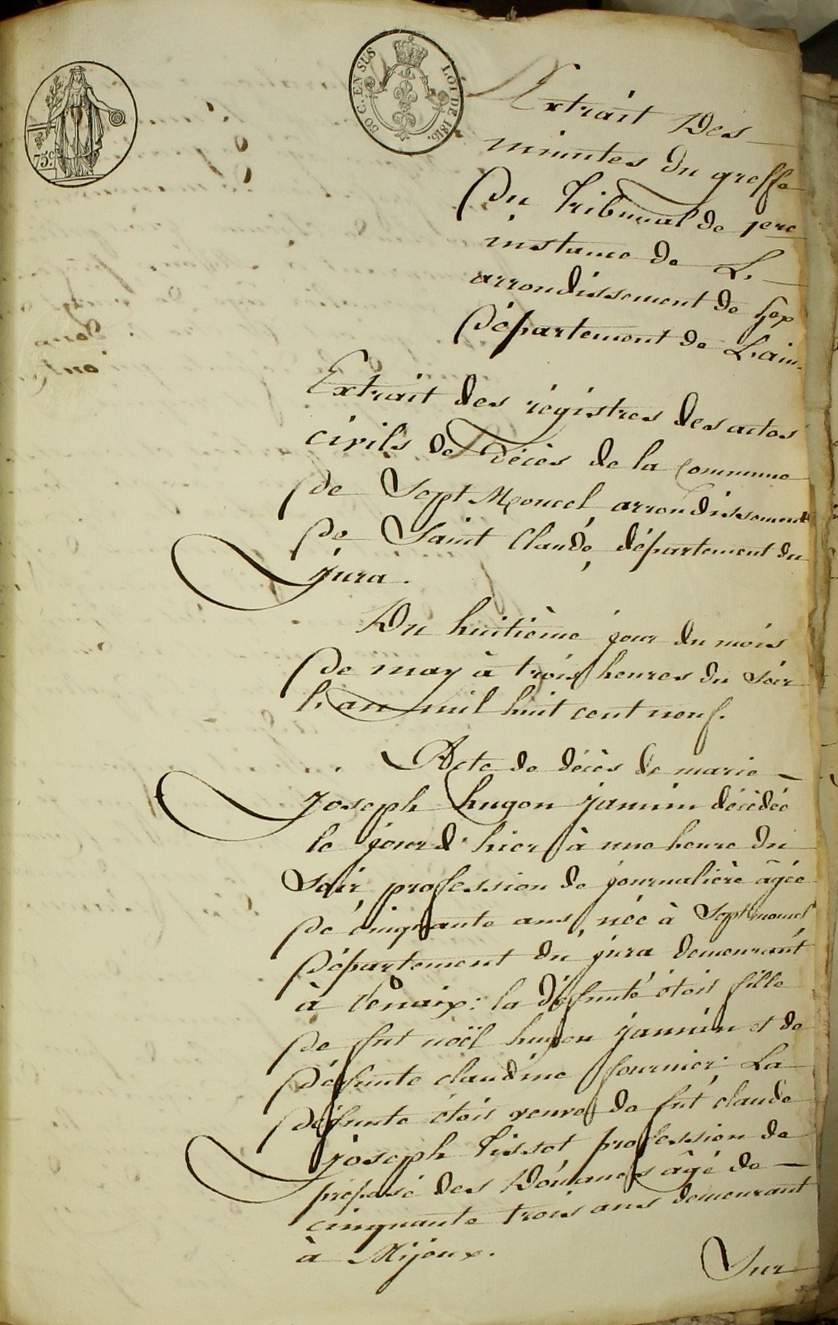 75c.
50 C. EN SUS LOI DE 1816.
Extrait Des
minutes du greffe
Du Tribunal de 1ere
instance de L.
arrondissement de Gex
Département de L'ain.
Extrait des régistres des actes
civils de décès de la Commune
de Sept Moncel arrondissement
de Saint Claude, département du
jura.
Du huitième jour du mois
de may à trois heures du soir
L'an mil huit cent neuf.
Acte de décès de marie
joseph hugon jannin décédée
le jour d'hier à une heure du
Soir profession de journalière âgée
de cinquante ans, née à Septmoncel
Département du jura demeurant
à : la défunte étoit fille
de fut noël hugon jannin et de
Défunte claudine fournier. La
défunte étoit veuve de fut claude
joseph Tissot profession de
préposé des Douanes âgé de
cinquante trois ans demeurant
à Mijoux.
Sur